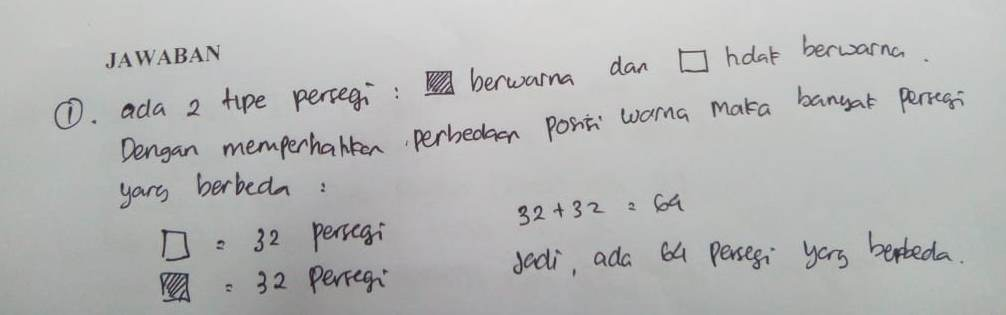 JAWABAN
①. ada 2 tipe persegi : berwarna dan tidak berwarna.
Dengan memperhatikan perbedaan posisi warna maka banyak persegi
yang berbeda :
= 32 persegi
= 32 persegi
32 + 32 = 64
Jadi, ada 64 persegi yang berbeda.